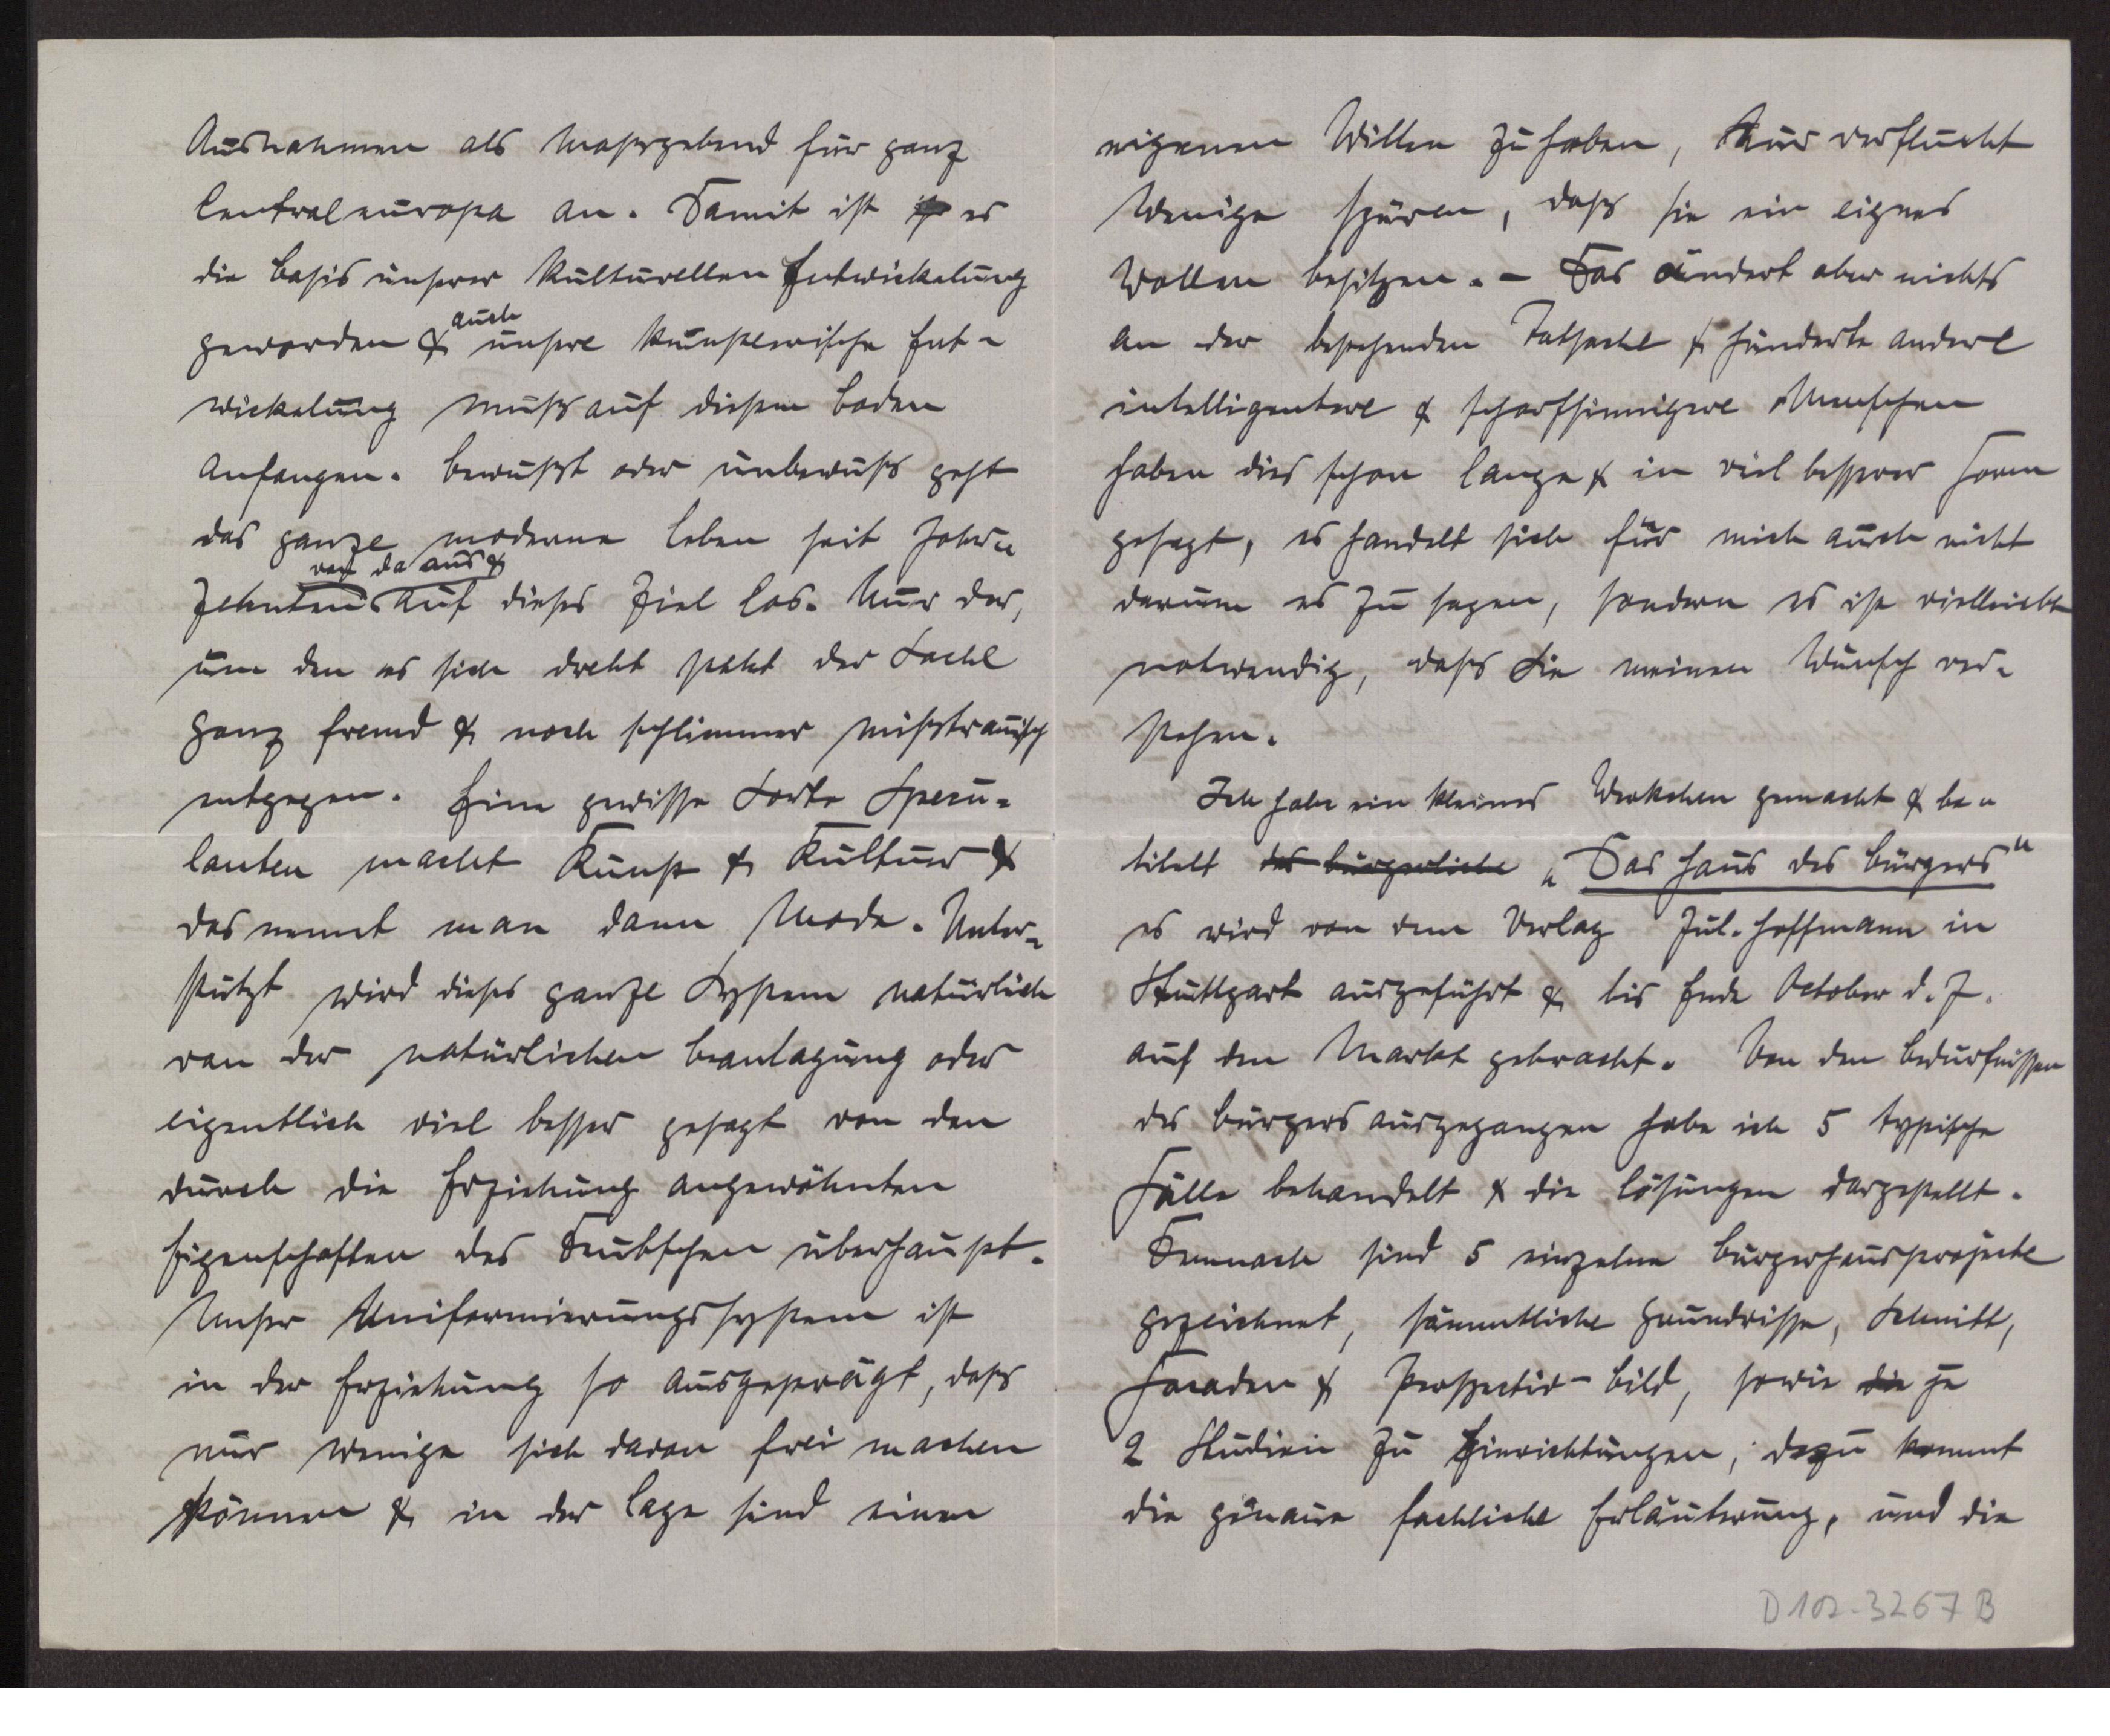 Ausnahmen als Massgebend für ganz
Centraleuropa an. Damit ist es
die Basis unserer kulturellen Entwickelung
geworden & auch unsere künstlerische Ent-
wickelung muss auf diesem Boden
anfangen. Bewusst oder unbewuss geht
das ganze moderne Leben seit Jahr-
zehnten von da aus & auf dieses Ziel los. Nur der,
um den es sich dreht steht der Sache
ganz fremd & noch schlimmer misstrauisch
entgegen. Eine gewisse Sorte Specu-
lanten macht Kunst & Kultur &
das nennt man dann Mode. Unter-
stützt wird dieses ganze System natürlich
von der natürlichen Beanlagung oder
eigentlich viel besser gesagt von den
durch die Erziehung angewöhnten
Eigenschaften des Deutschen überhaupt.
Unser Uniformierungssystem ist
in der Erziehung so ausgeprägt, dass
nur wenige sich davon frei machen
können & in der Lage sind einen
eigenen Willen zu haben, Nur verflucht
Wenige spüren, dass sie ein eignes
Wollen besitzen. – Das ändert aber nichts
an der bestehenden Tatsache & hunderte andere
intelligentere & scharfsinnigere Menschen
haben dies schon lange & in viel besserer Form
gesagt, es handelt sich für mich auch nicht
darum es zu sagen, sondern es ist vielleicht
notwendig, dass Sie meinen Wunsch ver-
stehen.
Ich habe ein kleines Werkchen gemacht & be-
titelt das bürgerliche „Das Haus des Bürgers“
es wird von dem Verlag Jul. Hoffmann in
Stuttgart ausgeführt & bis Ende October d. J.
auf den Markt gebracht. Von den Bedürfnissen
des Bürgers ausgegangen habe ich 5 typische
Fälle behandelt & die Lösungen dargestellt.
Demnach sind 5 einzelne Bürgerhausprojecte
gezeichnet, sämmtliche Grundrisse, Schnitt,
Facaden & Perspectiv-Bild, sowie die je
2 Studien zu Einrichtungen; dazu kommt
die genaue fachliche Erläuterung, und die
D 102-3267 B